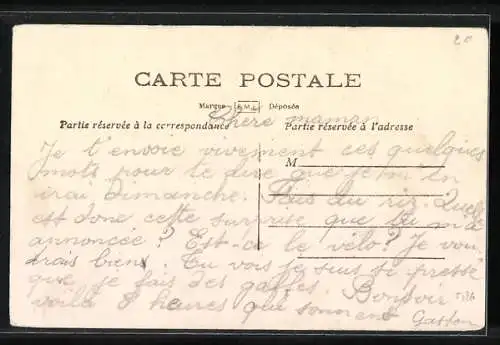 20
CARTE POSTALE
Marque E.M.L. Déposée
Chère maman
Partie réservée à la correspondance
Partie réservée à l'adresse
M
Je t'envoie vivement ces quelques
mots pour te dire que je m'en
irai Dimanche. du riz. Quelle
est donc cette surprise que tu m'as
annoncée? Est-ce le vélo? Je vou
drais bien. Tu vois je suis si pressé
que je fais des gaffes. Bonsoir
voilà 8 heures qui sonnent
Gaston